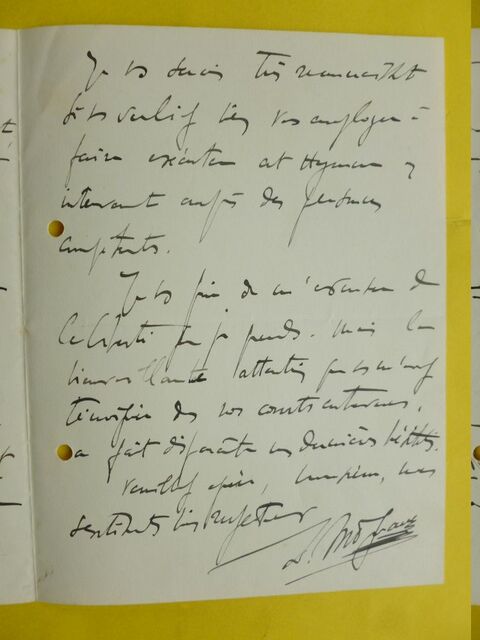 Je vs serais très reconnaissant
si vs vouliez bien vous employer à
faire exécuter cet Hymne en
intervenant auprès des personnes
compétentes.
Je vs prie de m'excuser de
la liberté que je prends. Mais la
bienveillante attention que vs m'avez
témoignée dès nos construntes,
a fait disparaître mes dernières
Veuillez agréer, Monsieur, mes
sentiments les respectueux